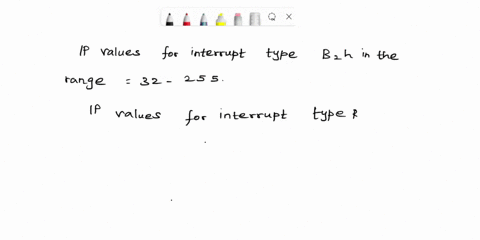 IP values for interrupt type B2h in the
range = 32 - 255.
IP values for interrupt type